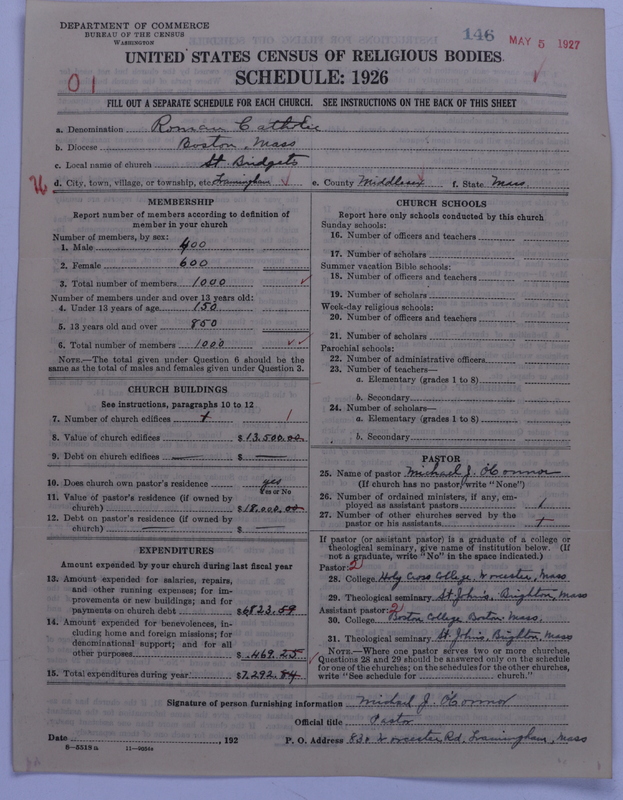 DEPARTMENT OF COMMERCE
BUREAU OF THE CENSUS
WASHINGTON
146
MAY 5 1927
UNITED STATES CENSUS OF RELIGIOUS BODIES
SCHEDULE: 1926
01
FILL OUT A SEPARATE SCHEDULE FOR EACH CHURCH. SEE INSTRUCTIONS ON THE BACK OF THIS SHEET
a. Denomination Roman Catholic
b. Diocese Boston, Mass
c. Local name of church St. Bridgets
d. City, town, village, or township, etc. Framingham e. County Middlesex f. State Mass
MEMBERSHIP
Report number of members according to definition of
member in your church
Number of members, by sex:
1. Male 400
2. Female 600
3. Total number of members 1000
Number of members under and over 13 years old:
4. Under 13 years of age 150
5. 13 years old and over 850
6. Total number of members 1000
NOTE.—The total given under Question 6 should be the
same as the total of males and females given under Question 3.
CHURCH BUILDINGS
See instructions, paragraphs 10 to 12
7. Number of church edifices 1
8. Value of church edifices $13,500.00
9. Debt on church edifices — $ —
10. Does church own pastor's residence yes
Yes or No
11. Value of pastor's residence (if owned by
church) $18,000.00
12. Debt on pastor's residence (if owned by
church) — $ —
EXPENDITURES
Amount expended by your church during last fiscal year
13. Amount expended for salaries, repairs,
and other running expenses; for im-
provements or new buildings; and for
payments on church debt $6823.59
14. Amount expended for benevolences, in-
cluding home and foreign missions; for
denominational support; and for all
other purposes $.469.25
15. Total expenditures during year $7,292.84
CHURCH SCHOOLS
Report here only schools conducted by this church
Sunday schools:
16. Number of officers and teachers
17. Number of scholars
Summer vacation Bible schools:
18. Number of officers and teachers
19. Number of scholars
Week-day religious schools:
20. Number of officers and teachers
21. Number of scholars
Parochial schools:
22. Number of administrative officers
23. Number of teachers—
a. Elementary (grades 1 to 8)
b. Secondary
24. Number of scholars—
a. Elementary (grades 1 to 8)
b. Secondary
PASTOR
25. Name of pastor Michael J. O'Connor
(If church has no pastor, write "None")
26. Number of ordained ministers, if any, em-
ployed as assistant pastors 1
27. Number of other churches served by the
pastor or his assistants 1
If pastor (or assistant pastor) is a graduate of a college or
theological seminary, give name of institution below. (If
not a graduate, write "No" in the space indicated.)
Pastor: 2
28. College Holy Cross College. Worcester, Mass
29. Theological seminary St Johns, Brighton, Mass
Assistant pastor: 2
30. College Boston College Boston Mass,
31. Theological seminary St. Johns, Brighton, Mass
NOTE.—Where one pastor serves two or more churches,
Questions 28 and 29 should be answered only on the schedule
for one of the churches; on the schedules for the other churches,
write "See schedule for church."
Signature of person furnishing information Michael J. O'Connor
Official title Pastor
Date , 192 P. O. Address Worcester Rd, Framingham, Mass
8-5518a